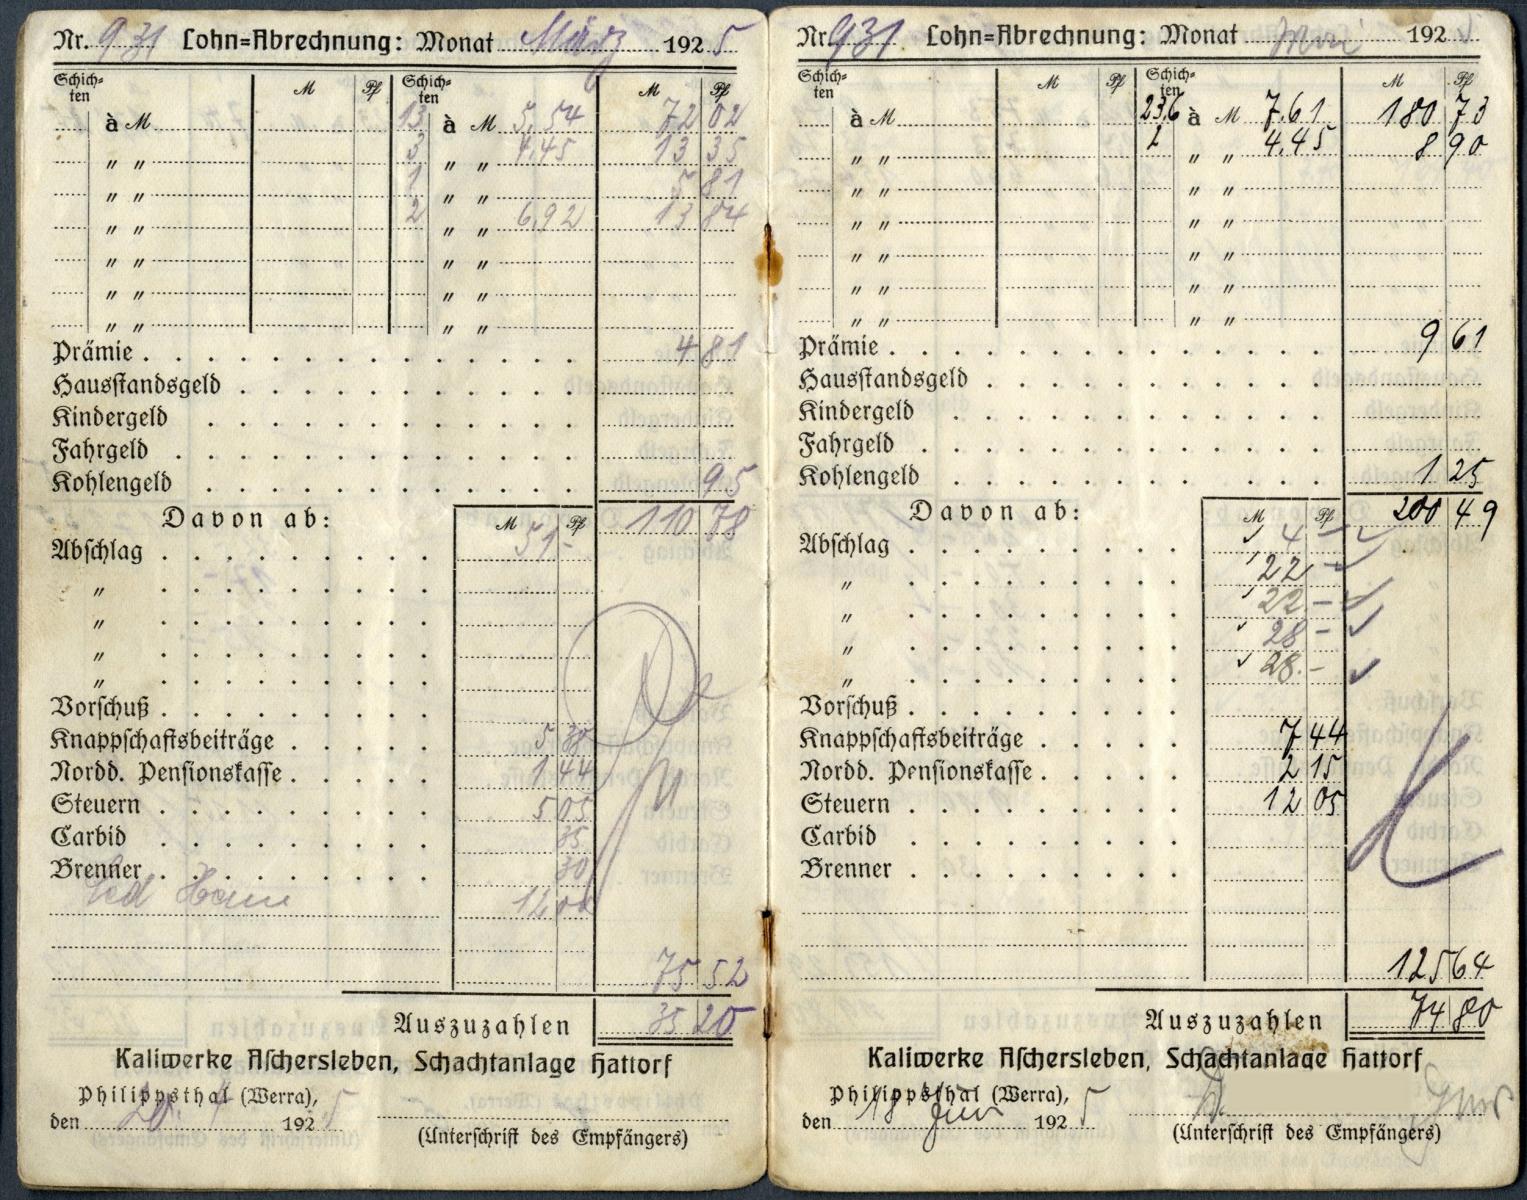 Nr. 931 Lohn=Abrechnung: Monat März 1925
Schich-ten M Pf Schich-ten M Pf
à M 13 à M 5,54 72 02
" " 3 " " 4,45 13 35
" " 1 " " 5 81
" " 2 " " 6,92 13 84
" " " "
" " " "
" " " "
Prämie 4 81
Hausstandsgeld
Kindergeld
Fahrgeld
Kohlengeld 95
Davon ab: M Pf 110 78
Abschlag 51 -
"
"
"
"
Vorschuß
Knappschaftsbeiträge 5 30
Nordd. Pensionskasse 1 44
Steuern 5 05
Carbid 35
Brenner 30
75 52
Auszuzahlen 35 20
Kaliwerke Aschersleben, Schachtanlage Hattorf
Philippsthal (Werra),
den 20. 4 1925
(Unterschrift des Empfängers)
Nr. 931 Lohn=Abrechnung: Monat Mai 192
Schich-ten M Pf Schich-ten M Pf
à M 23,6 à M 7,61 180 73
" " 2 " " 4,45 8 90
" " " "
" " " "
" " " "
" " " "
" " " "
Prämie 9 61
Hausstandsgeld
Kindergeld
Fahrgeld
Kohlengeld 1 25
Davon ab: M Pf 200 49
Abschlag 4 -
" 22 -
" 22 -
" 28 -
" 28 -
Vorschuß
Knappschaftsbeiträge 7 44
Nordd. Pensionskasse 2 15
Steuern 12 05
Carbid
Brenner
125 64
Auszuzahlen 74 80
Kaliwerke Aschersleben, Schachtanlage Hattorf
Philippsthal (Werra),
den 18 Juni 1925
(Unterschrift des Empfängers)